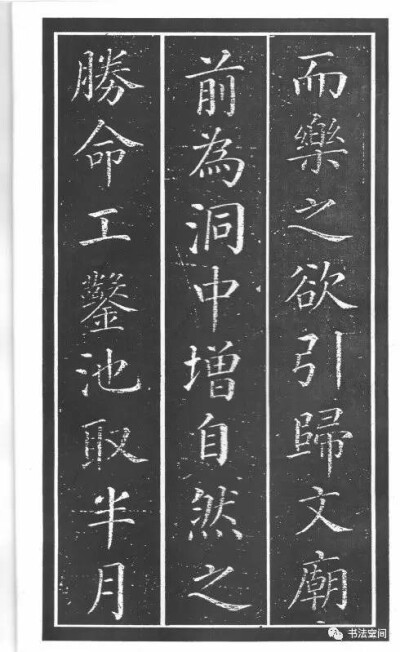 而樂之欲引歸文廟
前為洞中增自然之
勝命工鑿池取半月
书法空间